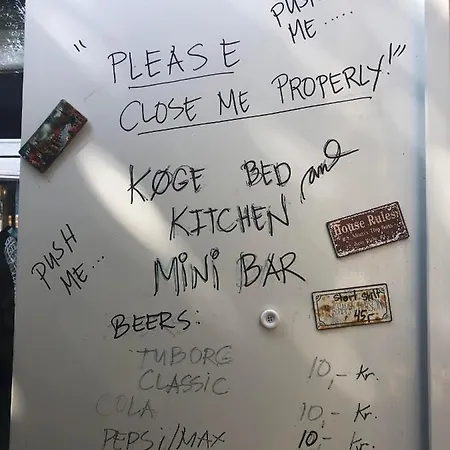 PUSH
ME.....
"PLEASE
CLOSE ME PROPERLY!"
KØGE BED and
KITCHEN
MINI BAR
PUSH
ME...
House Rules
BEERS:
TUBORG
CLASSIC 10,- Kr.
COLA 10,- Kr.
PEPSI/MAX 10,- Kr.